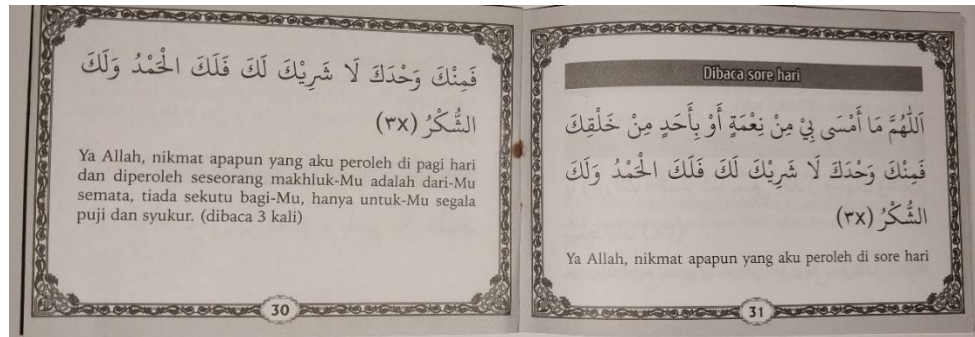 فَمِنْكَ وَحْدَكَ لَا شَرِيْكَ لَكَ فَلَكَ الْحَمْدُ وَلَكَ
الشُّكْرُ (٣x)
Ya Allah, nikmat apapun yang aku peroleh di pagi hari
dan diperoleh seseorang makhluk-Mu adalah dari-Mu
semata, tiada sekutu bagi-Mu, hanya untuk-Mu segala
puji dan syukur. (dibaca 3 kali)
30
Dibaca sore hari
اَللّٰهُمَّ مَا أَمْسَى بِيْ مِنْ نِعْمَةٍ أَوْ بِأَحَدٍ مِنْ خَلْقِكَ
فَمِنْكَ وَحْدَكَ لَا شَرِيْكَ لَكَ فَلَكَ الْحَمْدُ وَلَكَ
الشُّكْرُ (٣x)
Ya Allah, nikmat apapun yang aku peroleh di sore hari
31